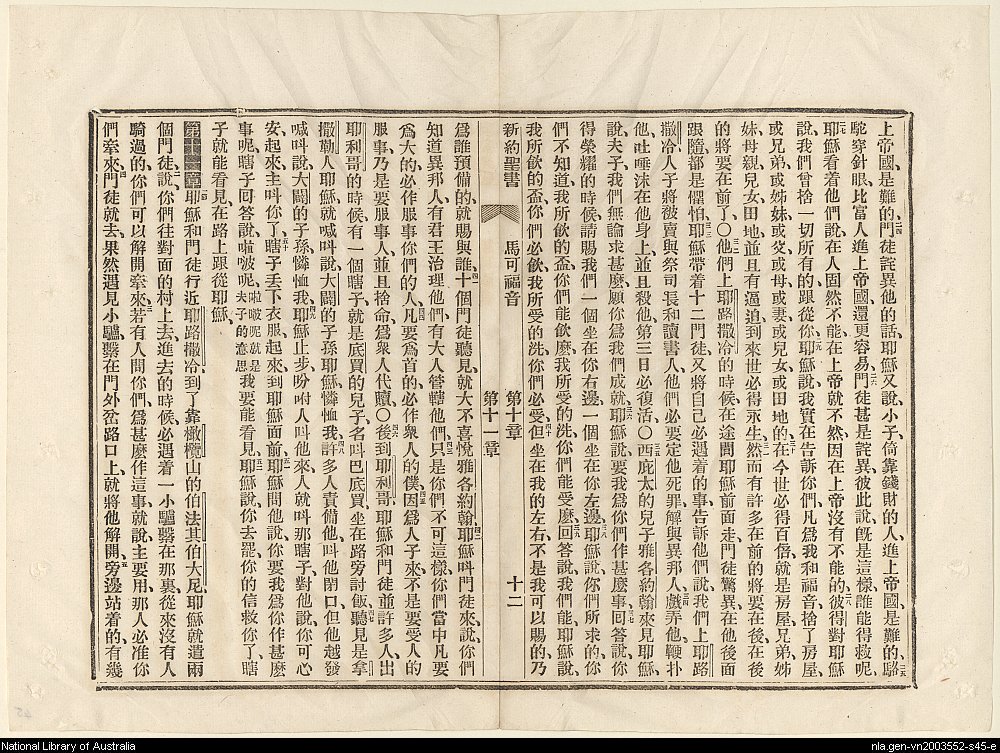 上帝國、是難的、二四門徒詫異他的話、耶穌又說、小子、倚靠錢財的人、進上帝國、是難的、二五駱
駝穿針眼、比富人進上帝國、還更容易、二六門徒甚是詫異、彼此說、旣是這樣、誰能得救呢、
二七耶穌看着他們說、在人固然不能、在上帝就不然、因在上帝沒有不能的、二八彼得對耶穌
說、我們曾捨一切所有的、跟從你、二九耶穌說、我實在告訴你們、凡爲我和福音、捨了房屋、
或兄弟、或姊妹、或父、或母、或妻、或兒女、或田地的、三十在今世必得百倍、就是房屋、兄弟、姊
妹、母親、兒女、田地、並且有逼迫、到來世必得永生、三一然而有許多在前的、將要在後、在後
的、將要在前了、〇三二他們上耶路撒冷的時候、在途間耶穌前面走、門徒驚異、在他後面
跟隨、都是懼怕、耶穌帶着十二門徒、又將自己必遇着的事告訴他們說、三三我們上耶路
撒冷、人子將被賣與祭司長和讀書人、他們必要定他死罪、解與異邦人、三四戲弄他、鞭扑
他、吐唾沫在他身上、並且殺他、第三日必復活、〇三五西庇太的兒子雅各約翰、來見耶穌
說、夫子、我們無論求甚麼、願你爲我們成就、三六耶穌說、要我爲你們作甚麼事、三七回答說、你
得榮耀的時候、請賜我們一個坐在你右邊、一個坐在你左邊、三八耶穌說、你們所求的、你
們不知道、我所飲的盃、你們能飲麼、我所受的洗、你們能受麼、三九回答說、我們能、耶穌說、
我所飲的盃、你們必飲、我所受的洗、你們必受、四十但坐在我的左右、不是我可以賜的、乃
新約聖書 馬可福音 第十章 第十一章 十二
爲誰預備的、就賜與誰、四一十個門徒聽見、就大不喜悅雅各約翰、四二耶穌呌門徒來、說、你們
知道異邦人有君王治理他們、有大人管轄他們、四三只是你們不可這樣、你們當中凡要
爲大的、必作服事你們的人、四四凡要爲首的、必作衆人的僕、四五因爲人子來、不是要受人的
服事、乃是要服事人、並且捨命、爲衆人代贖、〇四六後到耶利哥、耶穌和門徒並許多人、出
耶利哥的時候、有一個瞎子、就是底買的兒子、名呌巴底買、坐在路旁討飯、四七聽見是拿
撒勒人耶穌、就喊呌說、大闢的子孫耶穌、憐恤我、四八許多人責備他、呌他閉口、但他越發
喊呌說、大闢的子孫憐恤我、四九耶穌止步、吩咐人呌他來、人就呌那瞎子、對他說、你可心
安、起來、主呌你了、五十瞎子丟下衣服、起來、到耶穌面前、五一耶穌問他說、你要我爲你作甚麼
事呢、瞎子回答說、啦啵呢、啦啵呢就是夫子的意思我要能看見、五二耶穌說、你去罷、你的信救你了、瞎
子就能看見、在路上跟從耶穌、
第十一章一耶穌和門徒行近耶路撒冷、到了靠橄欖山的伯法其伯大尼、耶穌就遣兩
個門徒、二說、你們往對面的村上去、進去的時候、必遇着一小驢繫在那裏、從來沒有人
騎過的、你們可以解開牽來、三若有人問你們、爲甚麼作這事、就說、主要用、那人必准你
們牽來、四門徒就去、果然遇見小驢繫在門外岔路口上、就將他解開、五旁邊站着的有幾
National Library of Australia
nla.gen-vn2003552-s45-e